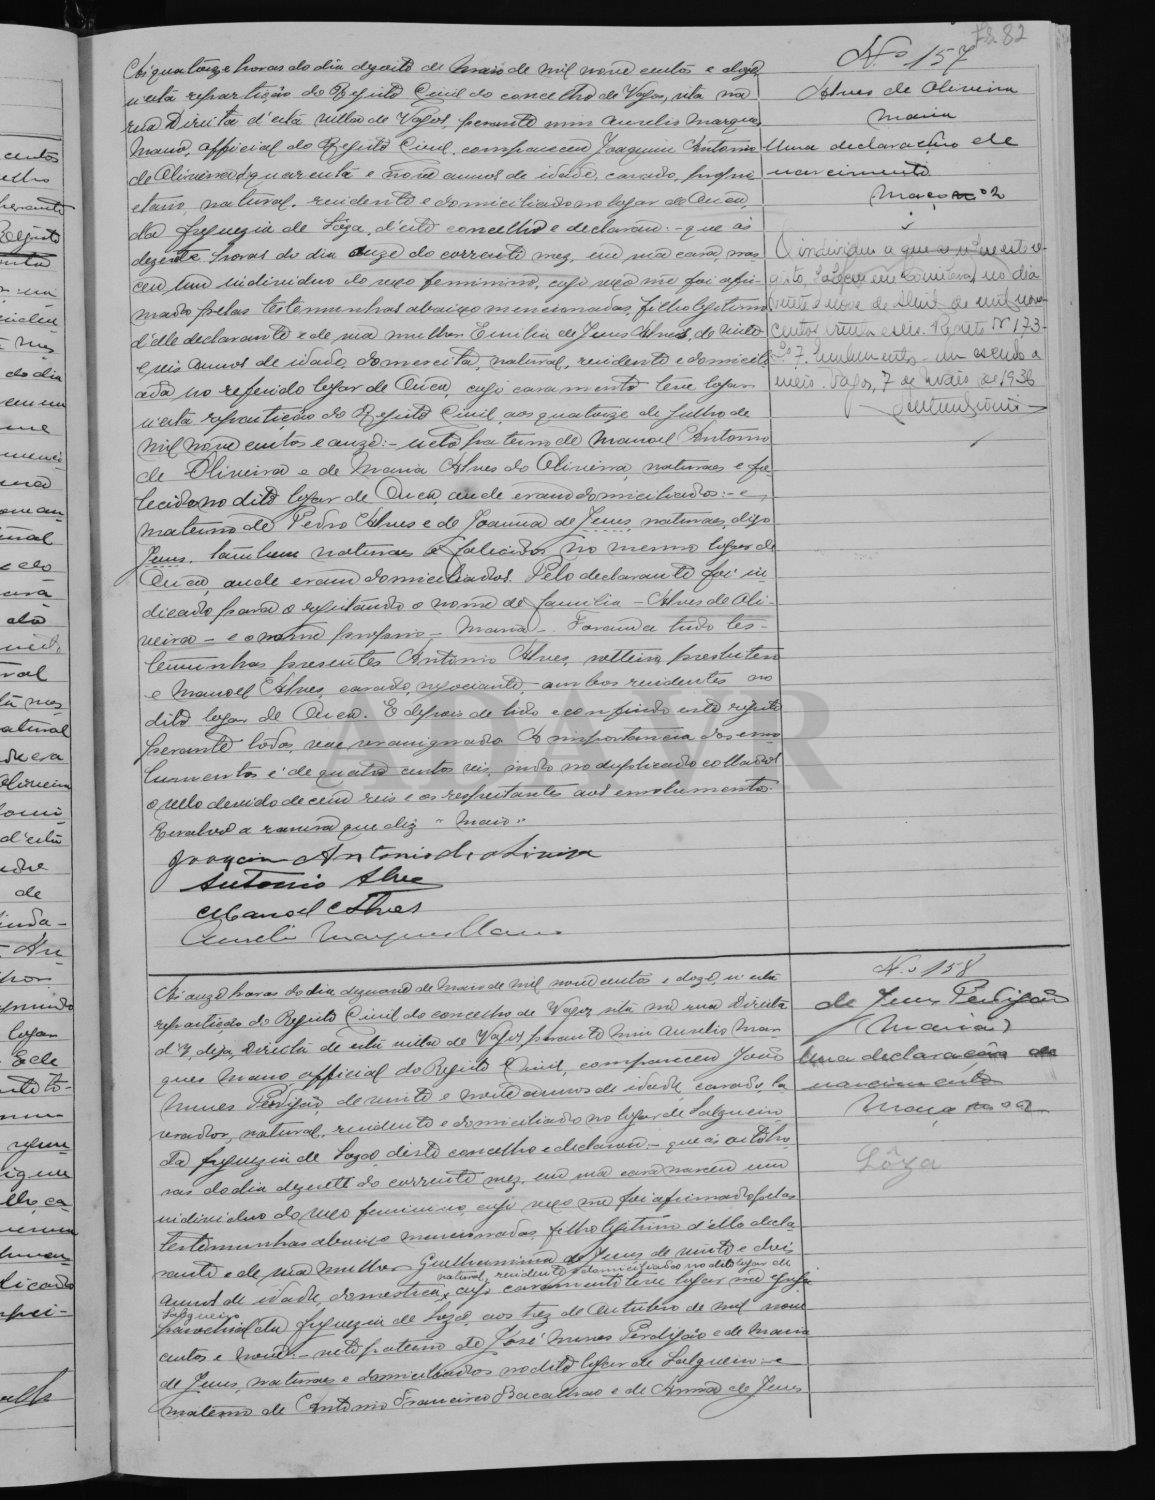 Fs. 82
Nº 157
Alves de Oliveira
Maria
Uma declaração de
nascimento
Março 02
O individuo a que se refere este re-
gisto, faleceu em no dia
vinte e nove de Abril de mil nove
centos e trinta e seis. Registo Nº 173.
meio. Vagos, 7 de Maio de 1936
Ás quatorze horas do dia dezoito de Maio de mil nove centos e doze,
n'esta repartição do Registo Civil do concelho de Vagos, sita na
rua Direita d'esta villa de Vagos, perante mim Aurelio Marques
Mano, official do Registo Civil, compareceu Joaquim Antonio
de Oliveira, de quarenta e nove annos de idade, casado, propri-
etario, natural, residente e domiciliado no logar de Ouca,
da freguezia de Sôza, d'este concelho e declarou: - que ás
dezesete horas do dia onze do corrente mez, em sua casa, nas-
ceu um individuo do sexo feminino, cujo sexo me foi afir-
mado pelas testemunhas abaixo mencionadas, filho legitimo
d'elle declarante e de sua mulher Emilia de Jesus Alves, de vinte
e seis annos de idade, domestica, natural, residente e domicili-
ada no referido logar de Ouca, cujo casamento teve logar
n'esta repartição do Registo Civil, aos quatorze de Julho de
mil nove centos e onze: - neto paterno de Manoel Antonio
de Oliveira e de Maria Alves de Oliveira, naturaes e fa-
lecidos no dito logar de Ouca, onde eram domiciliados: - e
materno de Pedro Alves e de Joanna de Jesus, naturaes, digo
Jesus, tambem naturaes e falecidos no mesmo logar de
Ouca, onde eram domiciliados. Pelo declarante foi in-
dicado para o registando o nome de familia - Alves de Oli-
veira - e o nome proprio - Maria -. Foram a tudo tes-
temunhas presentes Antonio Alves, solteiro, presbitero
e Manoel Alves, casado, negociante, ambos residentes no
dito logar de Ouca. E depois de lido e conferido este registo
perante todos, vae ser assignado. A importancia dos emo-
lumentos é de quatro centos reis, indo no duplicado collados
o sello devido de cem reis e os respeitantes aos emolumentos.
Resalvo a rasura que diz "Maio".
Joaquim Antonio de Oliveira
Antonio Alves
Manoel Alves
Aurelio Marques Mano
Nº 158
de Jesus Perdigão
(Maria)
Uma declaração de
nascimento
Março 02
Sôza
Ás onze horas do dia dezenove de Maio de mil nove centos e doze, n'esta
repartição do Registo Civil do concelho de Vagos, sita na rua Direita
d'esta villa de Vagos, perante mim Aurelio Mar-
ques Mano, official do Registo Civil, compareceu João
Nunes Perdigão, de vinte e annos de idade, casado, la-
vrador, natural, residente e domiciliado no logar de Salgueiro
da freguezia de Sôza, d'este concelho e declarou: - que ás oito ho-
ras do dia dezesete do corrente mez, em sua casa nasceu um
individuo do sexo feminino, cujo sexo me foi afirmado pelas
testemunhas abaixo mencionadas, filho legitimo d'elle decla-
rante e de sua mulher Guilhermina de Jesus, de vinte e dois
natural, residente e domiciliada no dito logar de
annos de idade, domestica, cujo casamento teve logar na igreja
Salgueiro
parochial da freguezia de Sôza, aos trez de Outubro de mil nove
centos e nove: - neto paterno de José Nunes Perdigão e de Maria
de Jesus, naturaes e domiciliados no dito logar de Salgueiro: - e
materno de Antonio Francisco Bacalhau e de Anna de Jesus
ADAVR